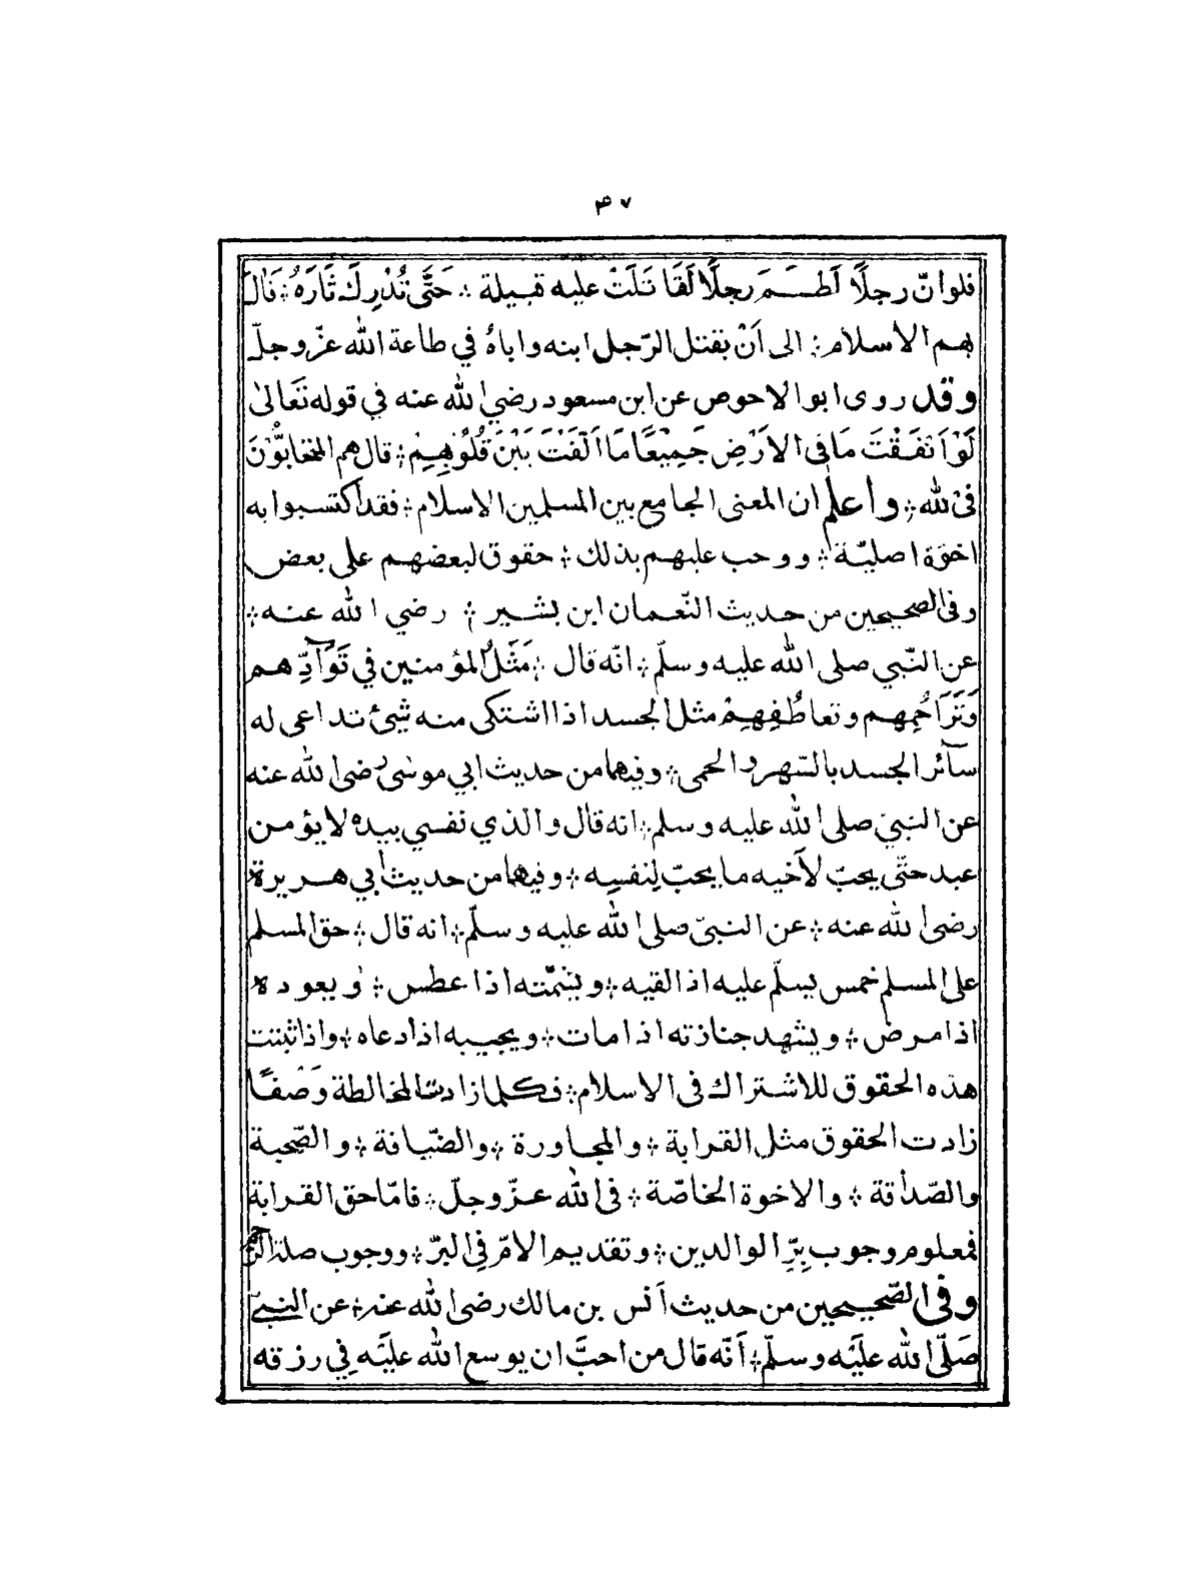 ٤٧
فلوانّ رجلًا لَطَمَ رجلًا لَقَاتَلَتْ عليه قبيلة ؞ حَتَّى تُدْرِكَ ثَارَهُ ؞ فَاٰلَ
بهم الاسلام ؞ الى اَنْ يقتل الرّجل ابنه واباهُ في طاعة الله عزّوجلّ
وقد روى ابوالاحوص عن ابن مسعود رضي الله عنه في قوله تَعَالىٰ
لَوْاَنْفَقْتَ مَافى الاَرْضِ جَمِيْعًا مَا اَلَّفْتَ بَيْنَ قُلُوْبِهِمْ ؞ قال هم المتحابُّوْنَ
فى الله ؞ واعلم ان المعنى الجامع بين المسلمين الاسلام ؞ فقد اكتسبوا به
اخوّة اصليّة ؞ ووجب عليهم بذلك ؞ حقوق لبعضهم على بعض
وفى الصحيحين من حديث النّعمان ابن بشير ؞ رضي الله عنه ؞
عن النّبي صلى الله عليه وسلّم ؞ انّه قال ؞ مَثَلُ المؤمنين في تَوَآدِّهم
وَتَرَاحُمِهم وتعاطُفِهِمْ مثل الجسد اذا اشتكى منه شيئ تداعى له
سآئر الجسد بالسّهر والحمى ؞ وفيهما من حديث ابي موسىٰ رضى الله عنه
عن النبيّ صلى الله عليه وسلم ؞ انه قال والذي نفسي بيده لا يؤمن
عبد حتّى يحبّ لأخيه ما يحبّ لنفسِه ؞ وفيهما من حديث ابي هريرة
رضى الله عنه ؞ عن النبىّ صلى الله عليه وسلّم ؞ انه قال ؞ حق المسلم
على المسلم خمس يسلّم عليه اذا لقيه ؞ ويشمّته اذا عطس ؞ ويعوده
اذا مرض ؞ ويشهد جنازته اذا مات ؞ ويجيبه اذا دعاه ؞ واذا ثبتت
هذه الحقوق للاشتراك فى الاسلام ؞ فكلما زادت المخالطة وَصْفًا
زادت الحقوق مثل القرابة ؞ والمجاورة ؞ والضّيافة ؞ والصّحبة
والصّداقة ؞ والاخوة الخاصّة ؞ فى الله عزّوجلّ ؞ فامّا حق القرابة
فمعلوم وجوب بِرِّ الوالدين ؞ وتقديم الامّ في البرّ ؞ ووجوب صلة الرّحم
وفى الصّحيحين من حديث أنس بن مالك رضى الله عنه ؞ عن النبيّ
صَلّى الله عليَه وسلّم ؞ أنّه قال من احبَّ ان يوسع الله عليَه فِي رزقه